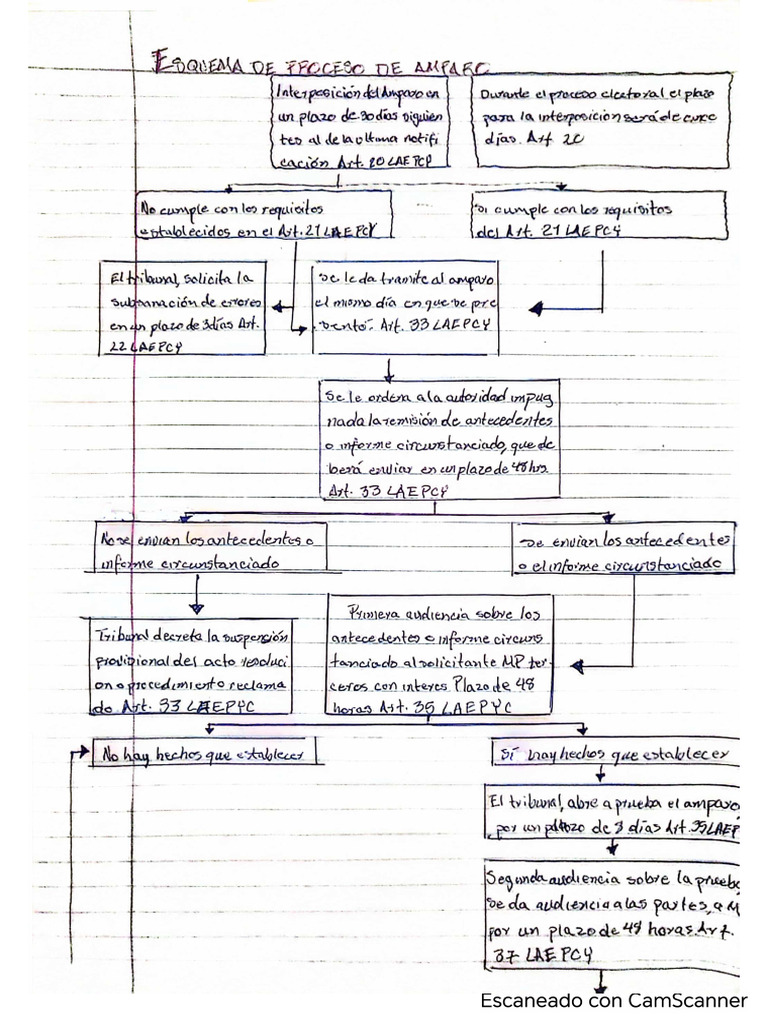 ESQUEMA DE PROCESO DE AMPARO
Interposición del Amparo en
un plazo de 30 días siguien
tes al de la ultima notifi
cación Art. 20 LAEPCP
Durante el proceso electoral el plazo
para la interposición será de cinco
días. Art 20
No cumple con los requisitos
establecidos en el Art. 21 LAEPCY
Si cumple con los requisitos
del Art. 21 LAEPCY
El tribunal, solicita la
subsanación de errores
en un plazo de 3 días Art.
22 LAEPCY
Se le da tramite al amparo
el mismo día en que se pre
sentó. Art. 33 LAEPCY
Se le ordena a la autoridad impug
nada la remisión de antecedentes
o informe circunstanciado, que de
berá enviar en un plazo de 48 hrs.
Art. 33 LAEPCY
No se envian los antecedentes o
informe circunstanciado
Se envian los antecedentes
o el informe circunstanciado
Tribunal decreta la suspensión
provisional del acto resoluci
on o procedimiento reclama
do Art. 33 LAEPYC
Primera audiencia sobre los
antecedentes o informe circuns
tanciado al solicitante MP ter
ceros con interes Plazo de 48
horas Art. 35 LAEPYC
No hay hechos que establecer
Sí hay hechos que establecer
El tribunal, abre a prueba el amparo,
por un plazo de 8 días Art. 35 LAEP
Segunda audiencia sobre la prueba,
se da audiencia a las partes, a M
por un plazo de 48 horas Art.
37 LAEPCY
Escaneado con CamScanner